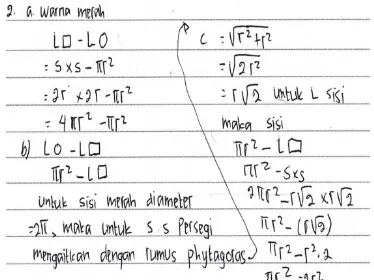 2. a. Warna merah
L□ - LO
= s x s - πr²
= 2r x 2r - πr²
= 4πr² - πr²
b) LO - L□
πr² - L□
untuk sisi merah diameter
= 2π, maka untuk s.s Persegi
mengaitkan dengan rumus phytagoras
c = √r²+r²
= √2r²
= r√2 untuk L sisi
maka sisi
πr² - L□
πr² - sxs
2πr² - r√2 x r√2
πr² - (r√2)
πr² - r².2
πr² - 2r²